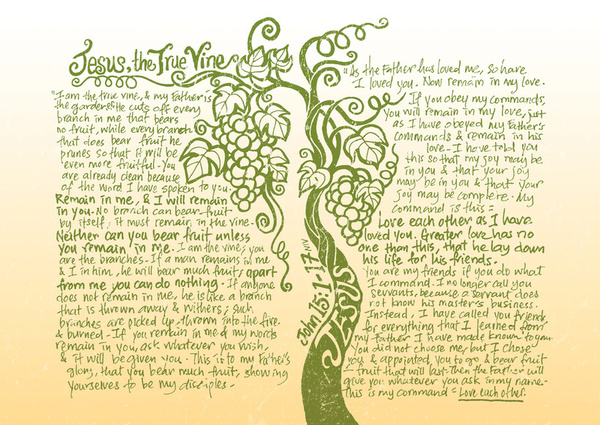 Jesus, the True Vine
"I am the true vine, & my Father is
the gardener. He cuts off every
branch in me that bears
no fruit, while every branch
that does bear fruit he
prunes so that it will be
even more fruitful. You
are already clean because
of the word I have spoken to you.
Remain in me, & I will remain
in you. No branch can bear fruit
by itself; it must remain in the vine.
Neither can you bear fruit unless
you remain in me. I am the vine; you
are the branches. If a man remains in me
& I in him, he will bear much fruit; apart
from me you can do nothing. If anyone
does not remain in me, he is like a branch
that is thrown away & withers; such
branches are picked up, thrown into the fire
& burned. If you remain in me & my words
remain in you, ask whatever you wish,
& it will be given you. This is to my Father's
glory, that you bear much fruit, showing
yourselves to be my disciples.
"As the Father has loved me, so have
I loved you. Now remain in my love.
If you obey my commands,
you will remain in my love, just
as I have obeyed my Father's
commands & remain in his
love. I have told you
this so that my joy may be
in you & that your joy
may be complete. My
command is this:
Love each other as I have
loved you. Greater love has no
one than this, that he lay down
his life for his friends.
You are my friends if you do what
I command. I no longer call you
servants, because a servant does
not know his master's business.
Instead, I have called you friends,
for everything that I learned from
my Father I have made known to you.
You did not choose me, but I chose
you & appointed you to go & bear fruit
- fruit that will last. Then the Father will
give you whatever you ask in my name.
This is my command: Love each other.
John 15:1-17 NIV
JESUS